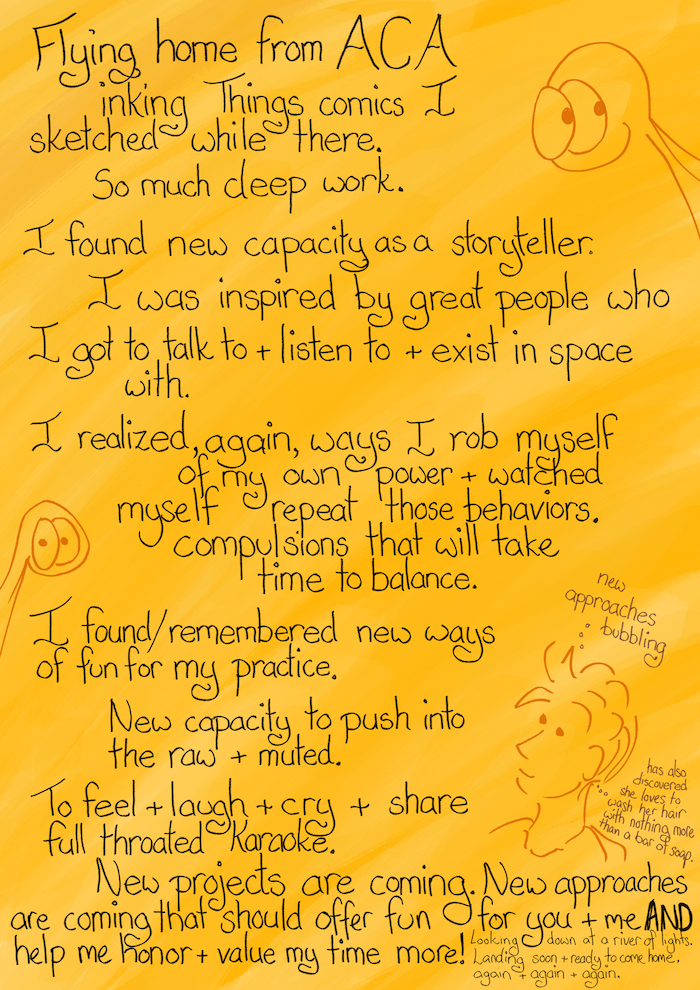 Flying home from ACA
inking Things comics I
sketched while there.
So much deep work.
I found new capacity as a storyteller.
I was inspired by great people who
I got to talk to + listen to + exist in space
with.
I realized, again, ways I rob myself
of my own power + watched
myself repeat those behaviors.
compulsions that will take
time to balance.
new
approaches
bubbling
I found/remembered new ways
of fun for my practice.
New capacity to push into
the raw + muted.
has also
discovered
she loves to
wash her hair
with nothing more
than a bar of soap.
To feel + laugh + cry + share
full throated Karaoke.
New projects are coming. New approaches
are coming that should offer fun for you + me AND
help me honor + value my time more!
Looking down at a river of lights.
Landing soon + ready to come home,
again + again + again.